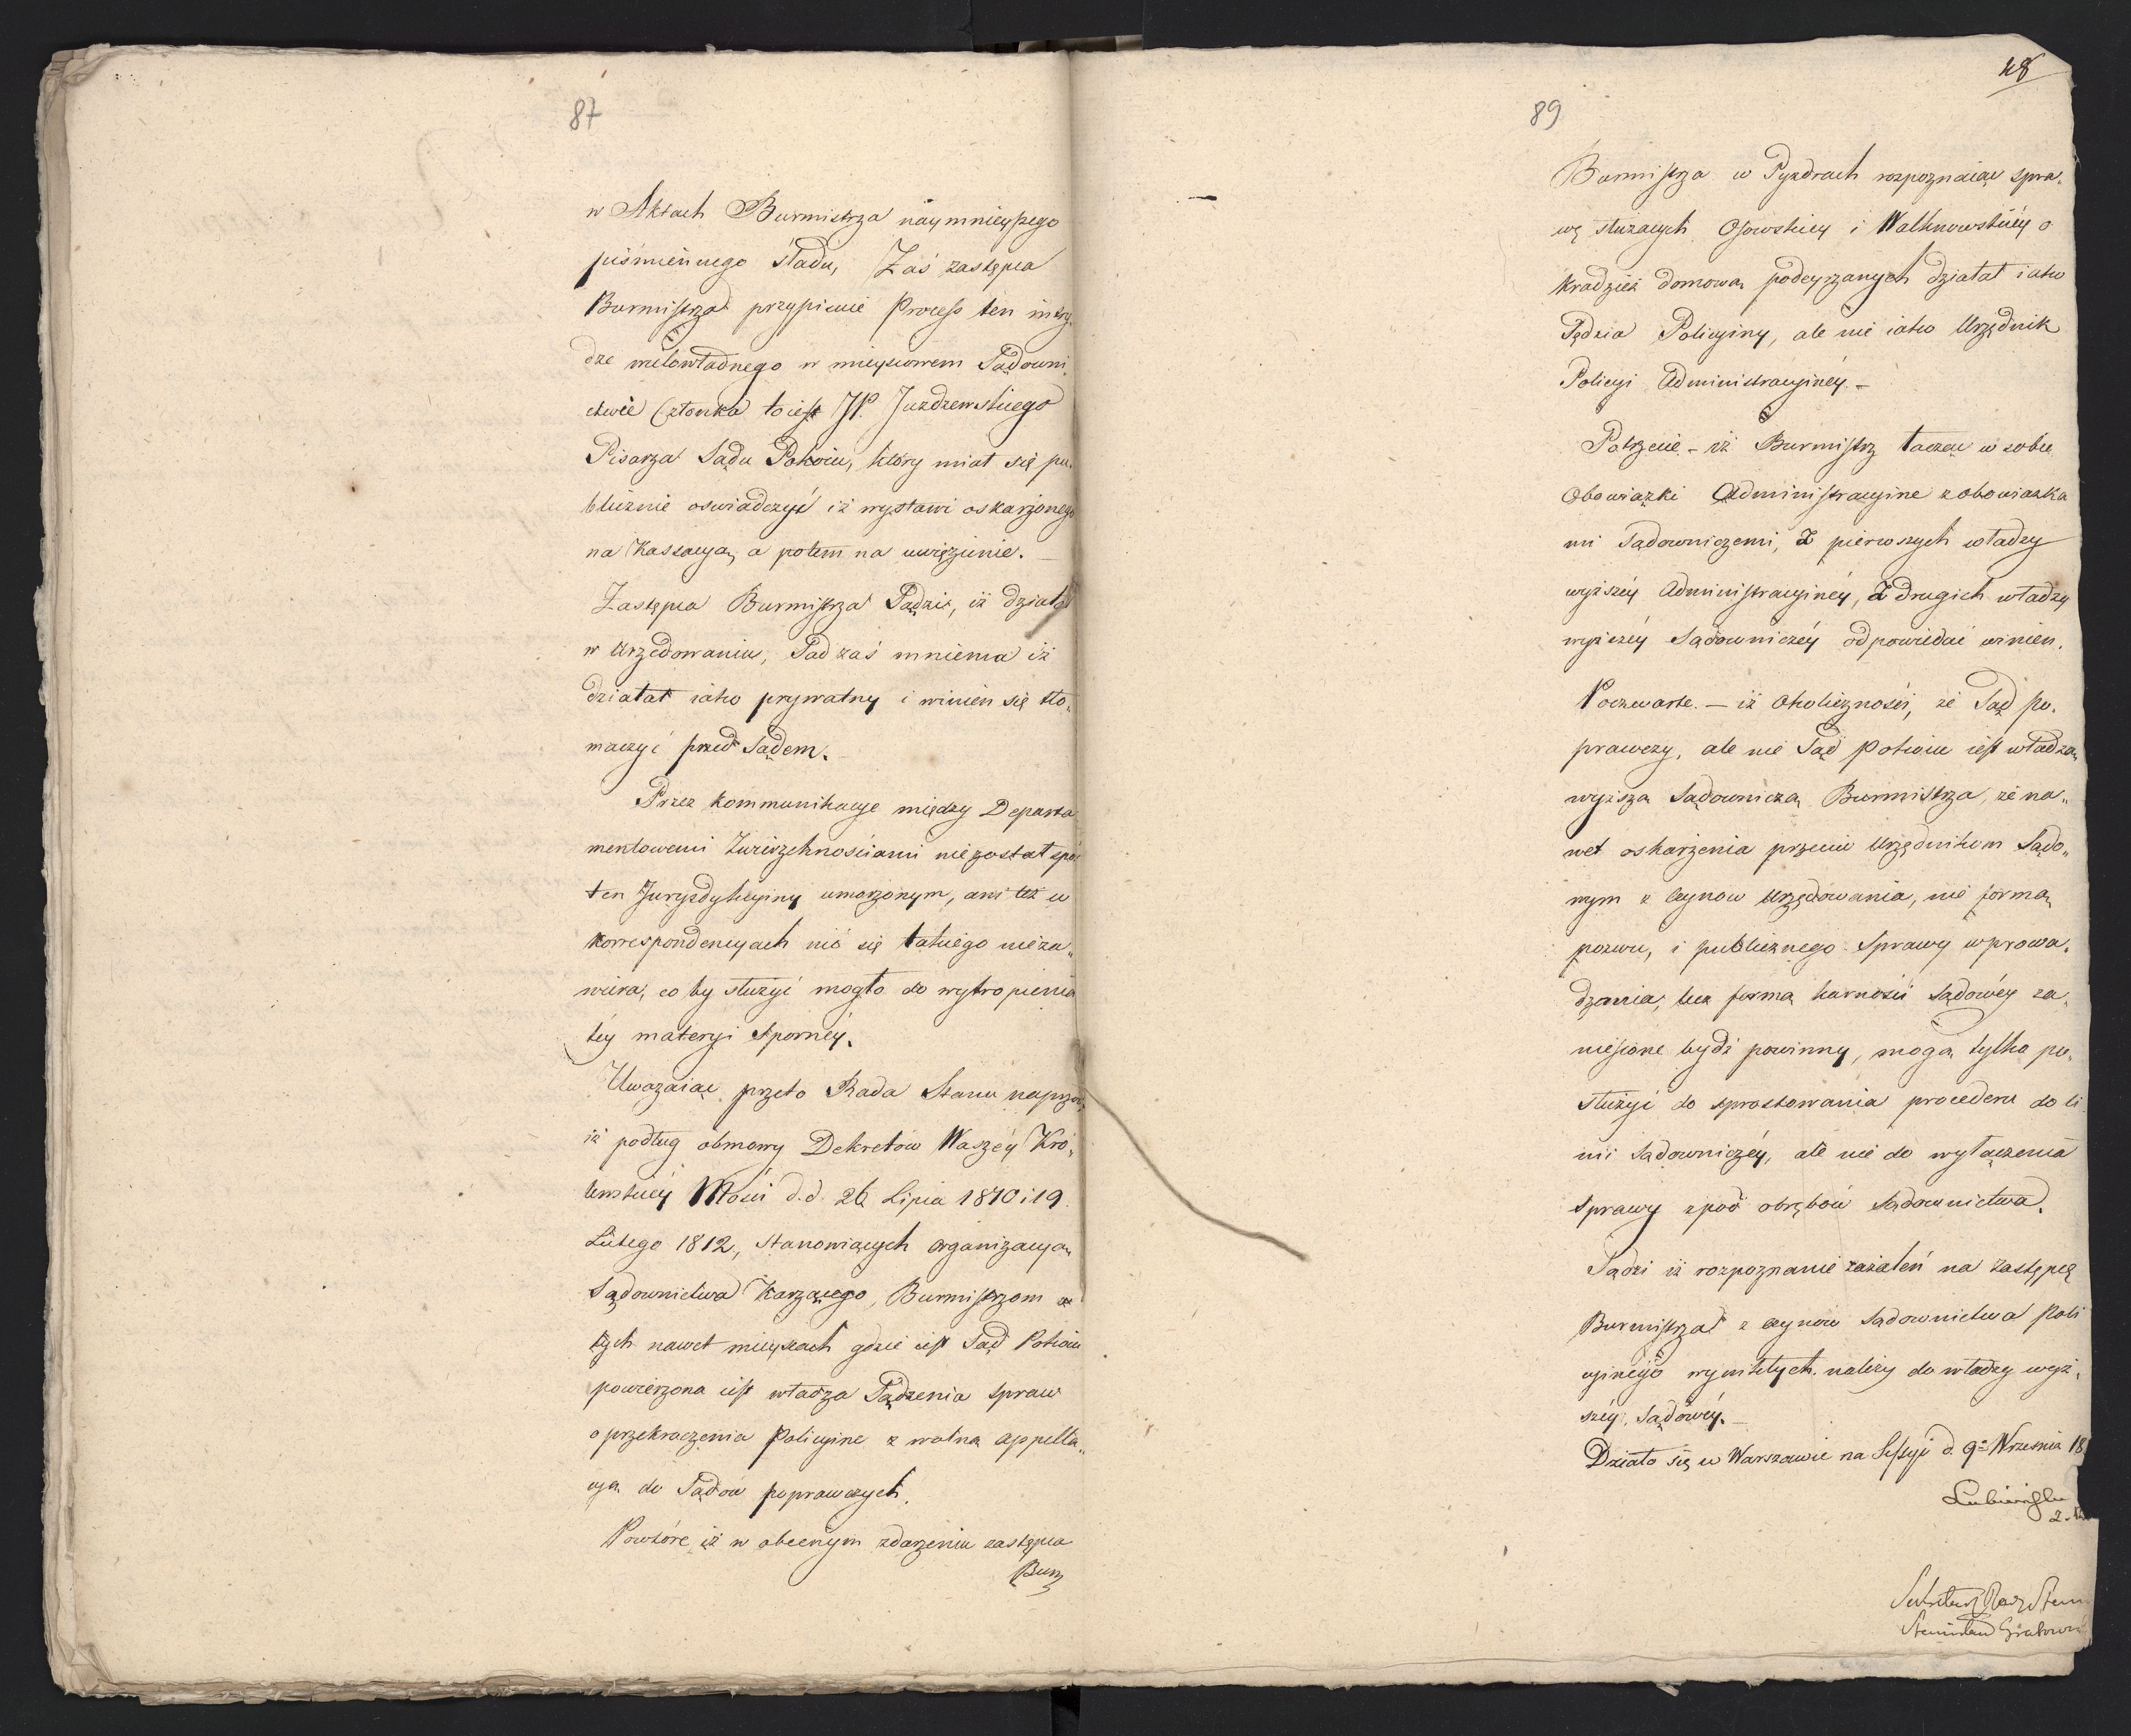 87
w Aktach Burmistrza náymnieyszego
piśmiennego śladu, Zaś zastępca
Burmistrza przypisuie Process ten intry„
dze wielowładnego w mieyscowem Sądowni„
ctwie Członka to iest JP. Juzdzewskiego
Pisarza Sądu Pokoiu, który miał się pu„
blicznie oswiadczyć iż wystawi oskarzonego
na Kassacyą, a potem na uwięzienie. —
Zastępca Burmistrza Sądzi, iż działał
w Urzędowaniu, Sąd zaś mniema iż
działał iako prywatny i winien się tło„
maczyć przed Sądem.
Przez kommunikacye między Departa
mentowemi Zwierzchnościami nie został spór
ten Juryzdykcyiny umorzonym, ani też w
korrespondencyach nić się takiego nieza„
wiera, co by służyć mogło do wytropienia
téy materyi Sporney.
Uważaiąc przeto Rada Stanu naprzód
iż podług obmowy Dekretów Waszéy Kró„
lewskiéy Mości d. d. 26 Lipca 1810 i 19.
Lutego 1812, stanowiących organizacyą
Sądownictwa Karzącego, Burmistrzom w
tych nawet mieyscach gdzie iest Sąd Pokoiu
powierzona iest władza Sądzenia spraw
o przekroczenia Policyine z wolną appella„
cyą do Sądów poprawczych.
Powtóre iż w obecnym zdarzeniu zastępca
Burm
48
89
Burmistrza w Pyzdrach rozpoznaiąc spra„
wę służących Osowskiey i Walknowskiéy o
kradzież domową podeyrzanych działał iako
Sędzia Policyiny, ale nie iako Urzędnik
Policyi Administracyinéy. —
Potrzecie — iż Burmistrz łącząc w sobie
Obowiązki Administracyine z obowiązka
mi Sądowniczemi, z pierwszych władzy
wyższéy Administracyinéy, z drugich władzy
wyższéy Sądowniczéy odpowiedać winien.
Poczwarte. — iż Okoliczność, że Sąd po„
prawczy, ale nie Sąd Pokoiu iest władzą
wyższą Sądowniczą Burmistrza, że na„
wet oskarżenia przeciw Urzędnikom Sądo„
wym z czynów Urzędowania, nie formą
pozwu, i publicznego Sprawy wprowa„
dzania, lecz formą karności Sądowéy za„
niesione bydź powinny, mogą tylko po„
służyć do sprostowania procederu do li
nii Sądowniczéy, ale nie do wyłączenia
Sprawy zpod obrębów Sądownictwa.
Sądzi iż rozpoznanie zażaleń na zastępcę
Burmistrza z czynów Sądownictwa Poli
cyinego wynikłych należy do władzy wyż„
széy Sądowéy. —
Działo się w Warszawie na Sessyi d. 9º Września 18
Lubieński
Sekretarz Rady Stanu
Stanisław Grabowski